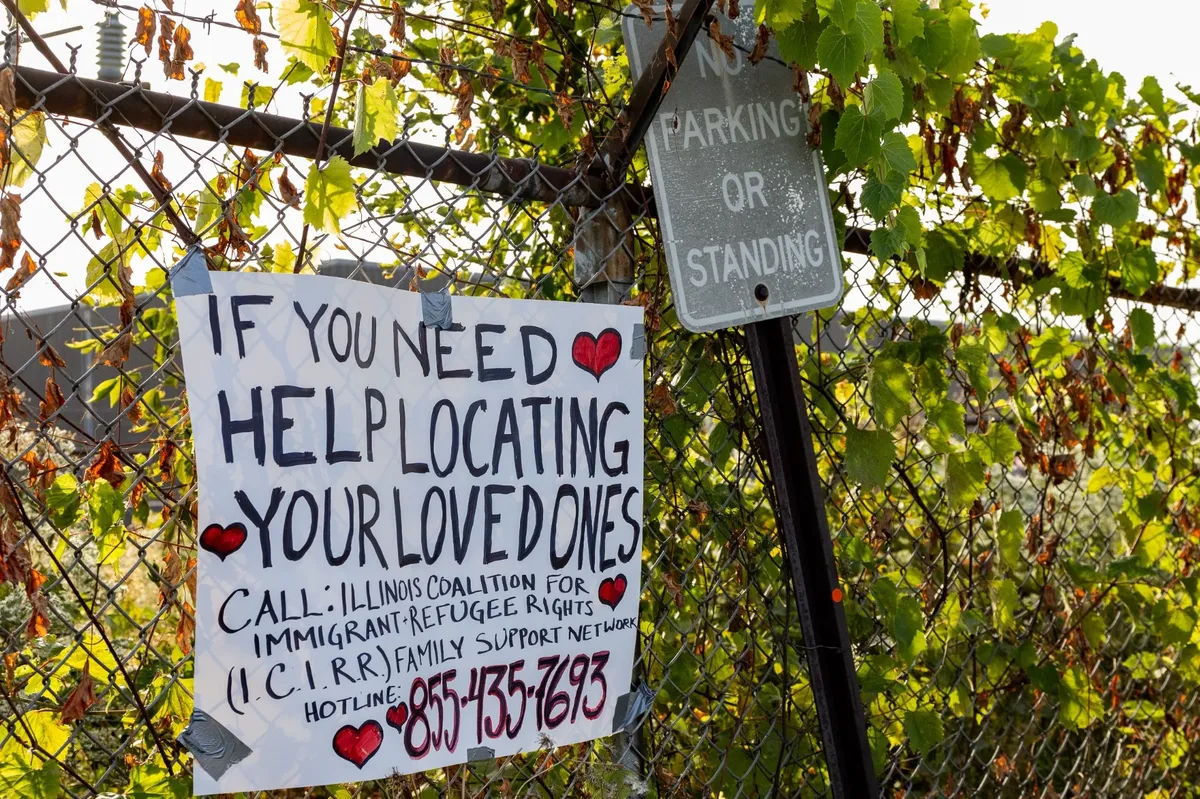 IF YOU NEED
HELP LOCATING
YOUR LOVED ONES
CALL: ILLINOIS COALITION FOR
IMMIGRANT + REFUGEE RIGHTS
(I.C.I.R.R.) FAMILY SUPPORT NETWORK
HOTLINE: 855-435-7693
NO
PARKING
OR
STANDING